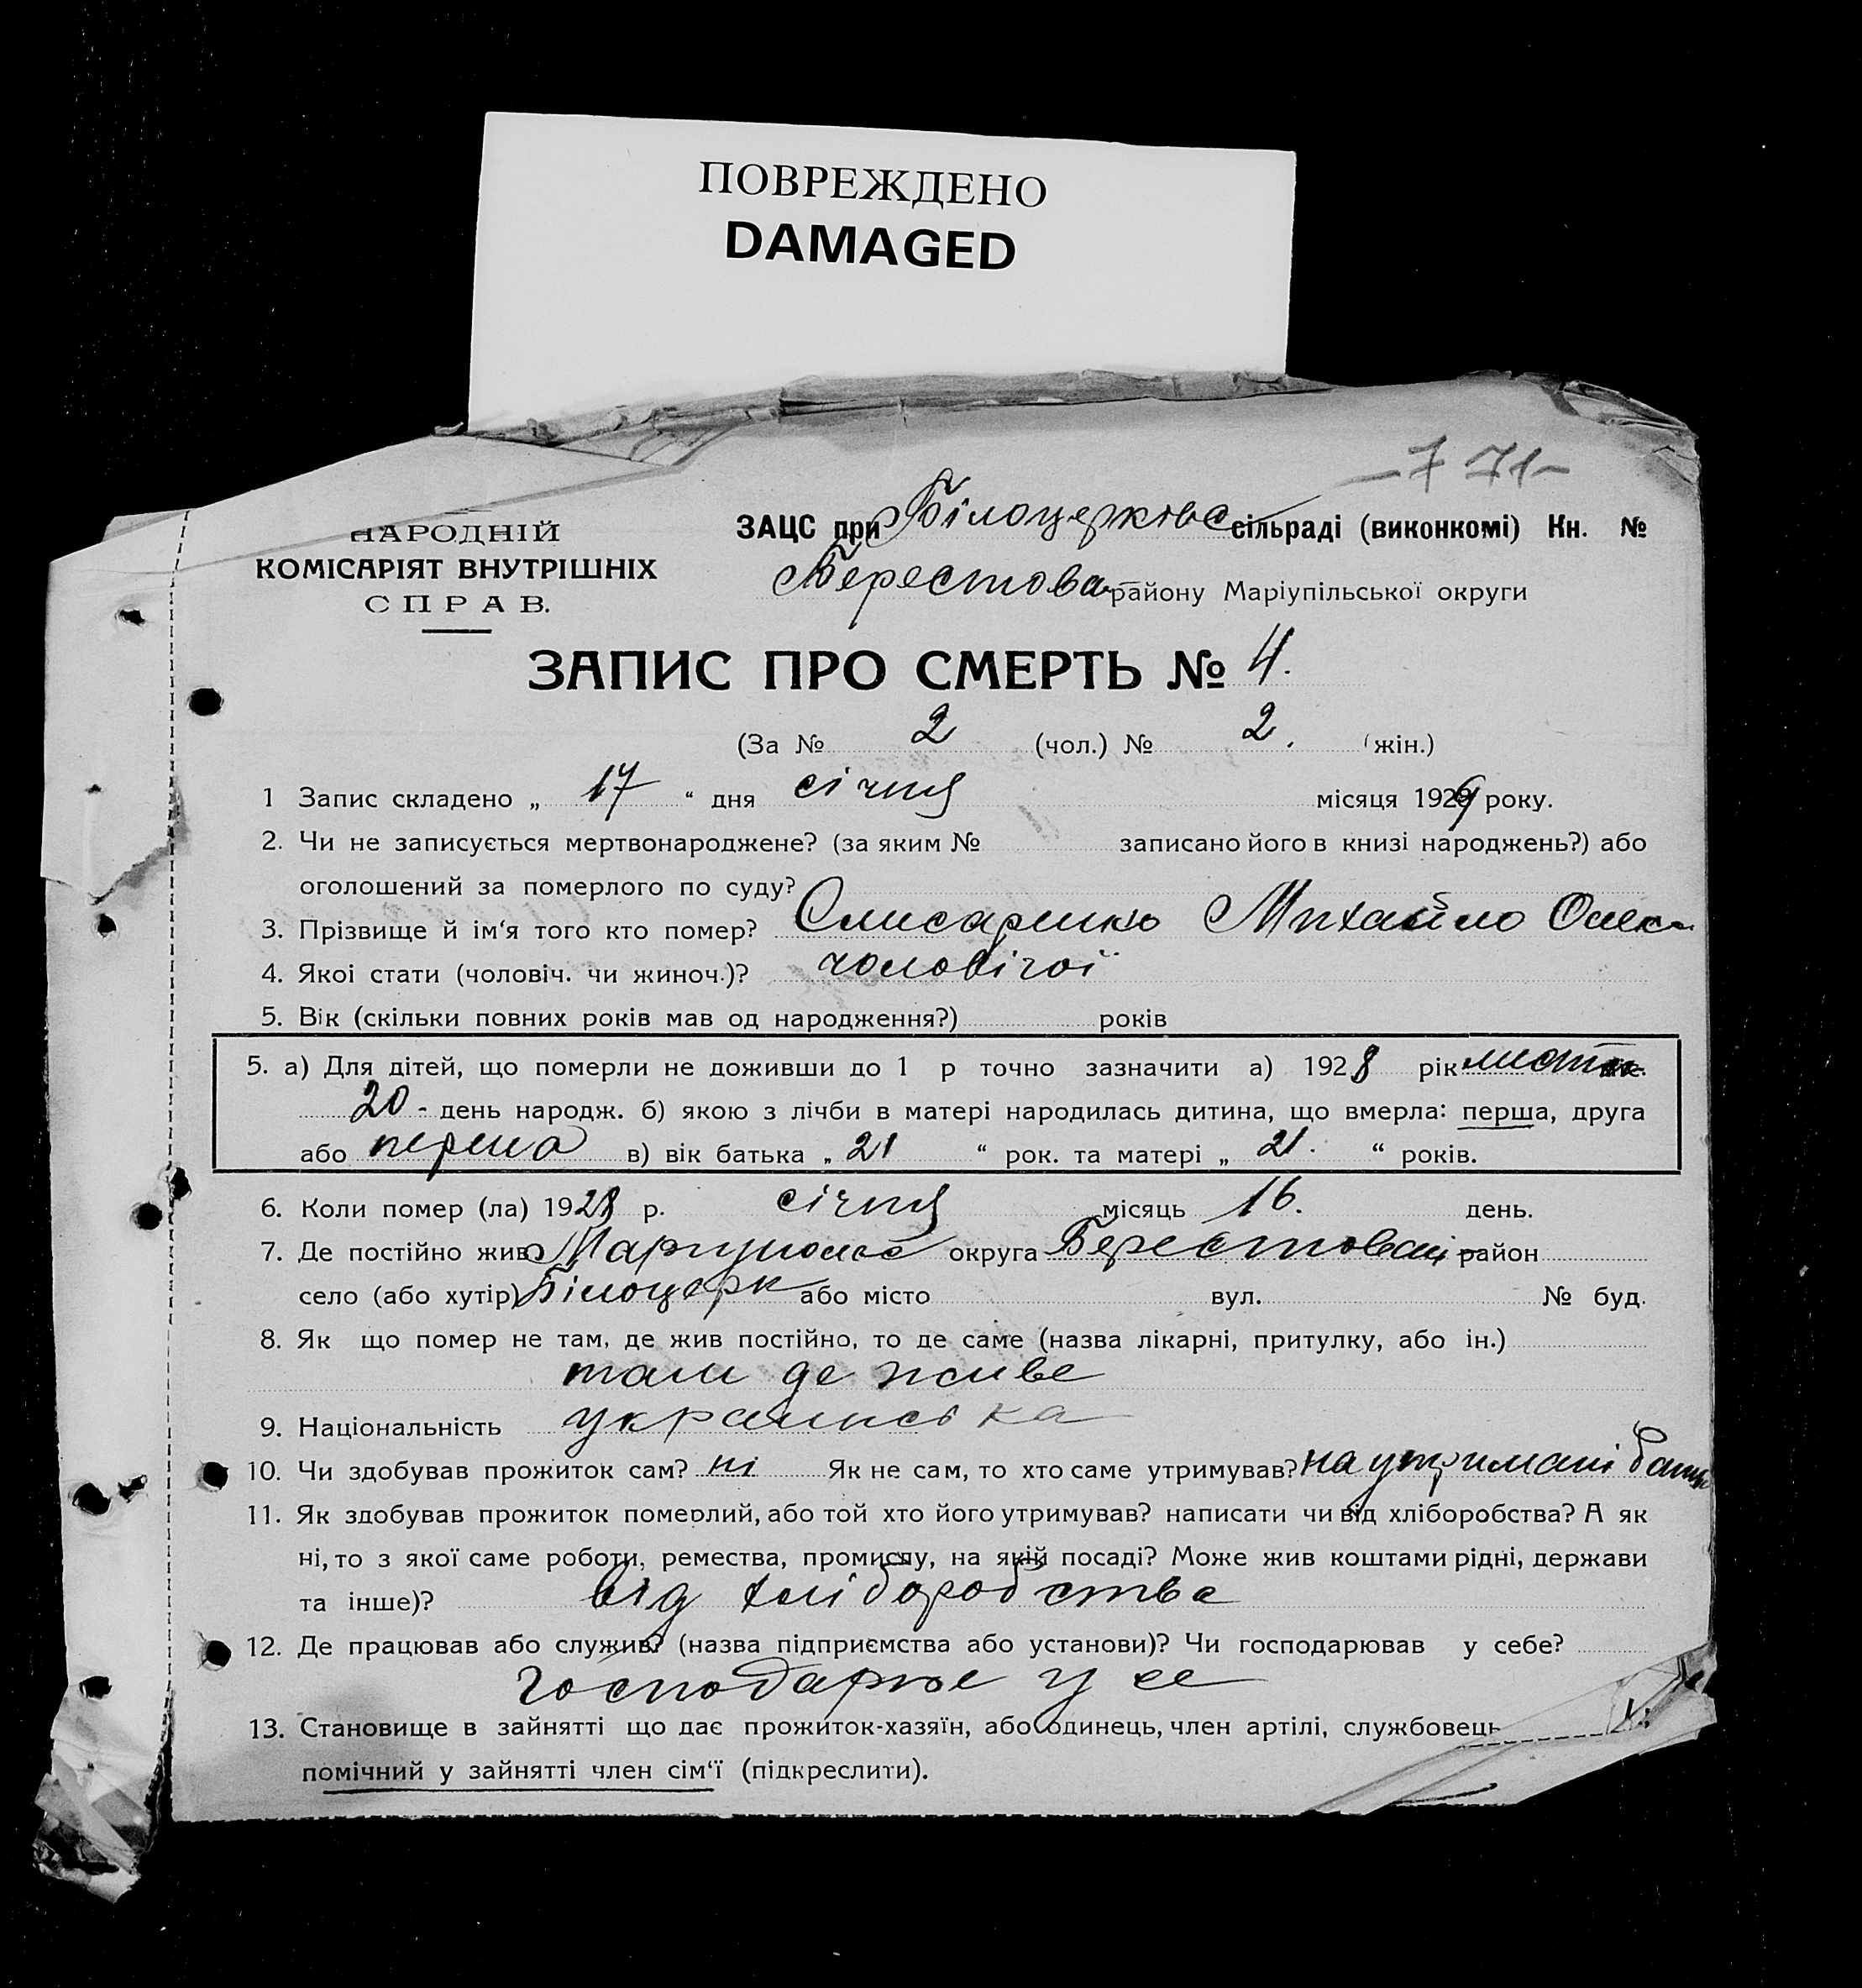 ПОВРЕЖДЕНО
DAMAGED
-7 71-
НАРОДНІЙ
КОМІСАРІЯТ ВНУТРІШНІХ
СПРАВ.
ЗАЦС при Білоцерківс сільраді (виконкомі) Кн. №
Берестова району Маріупільської округи
ЗАПИС ПРО СМЕРТЬ № 4.
(За № 2 (чол.) № 2. (жін.)
1 Запис складено „ 17 “ дня січня місяця 1929 року.
2. Чи не записується мертвонароджене? (за яким № записано його в книзі народжень?) або
оголошений за померлого по суду?
3. Прізвище й ім‘я того кто помер? Слисаренко Михайло Олек
4. Якоі стати (чоловіч. чи жиноч.)? чоловічої
5. Вік (скільки повних років мав од народження?) років
5. а) Для дітей, що померли не доживши до 1 р точно зазначити а) 1928 рік
20 - день народж. б) якою з лічби в матері народилась дитина, що вмерла: перша, друга
або перша в) вік батька „ 21 “ рок. та матері „ 21. “ років.
6. Коли помер (ла) 1928 р. січня місяць 16. день.
7. Де постійно жив округа район
село (або хутір) Білоцерк або місто вул. № буд.
8. Як що помер не там, де жив постійно, то де саме (назва лікарні, притулку, або ін.)
там де живе
9. Національність украинська
10. Чи здобував прожиток сам? ні Як не сам, то хто саме утримував? на утримані батьк
11. Як здобував прожиток померлий, або той хто його утримував? написати чи від хліборобства? А як
ні, то з якої саме роботи, ремества, промислу, на якій посаді? Може жив коштами рідні, держави
та інше)? від хліборобства
12. Де працював або служив? (назва підприємства або установи)? Чи господарював у себе?
господарює у се
13. Становище в зайнятті що дає прожиток-хазяїн, або одинець, член артілі, службовець
помічний у зайнятті член сім‘ї (підкреслити).